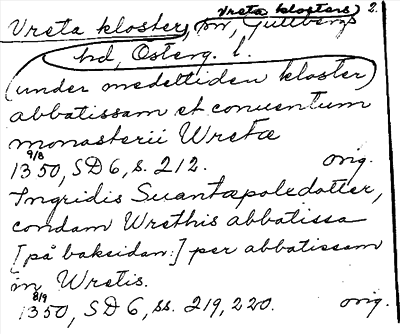 Vreta klosters 2.
Vreta kloster, sn, Gullbergs
hd, Österg. l.
(under medeltiden kloster)
abbatissam et conuentum
monasterii Wretæ
9/8
1350, SD 6, s. 212. orig.
Ingridis Suantæpolcdotter,
condam Wrethis abbatissa
[på baksidan:] per abbatissam
in Wretis.
8/9
1350, SD 6, ss. 219, 220. orig.